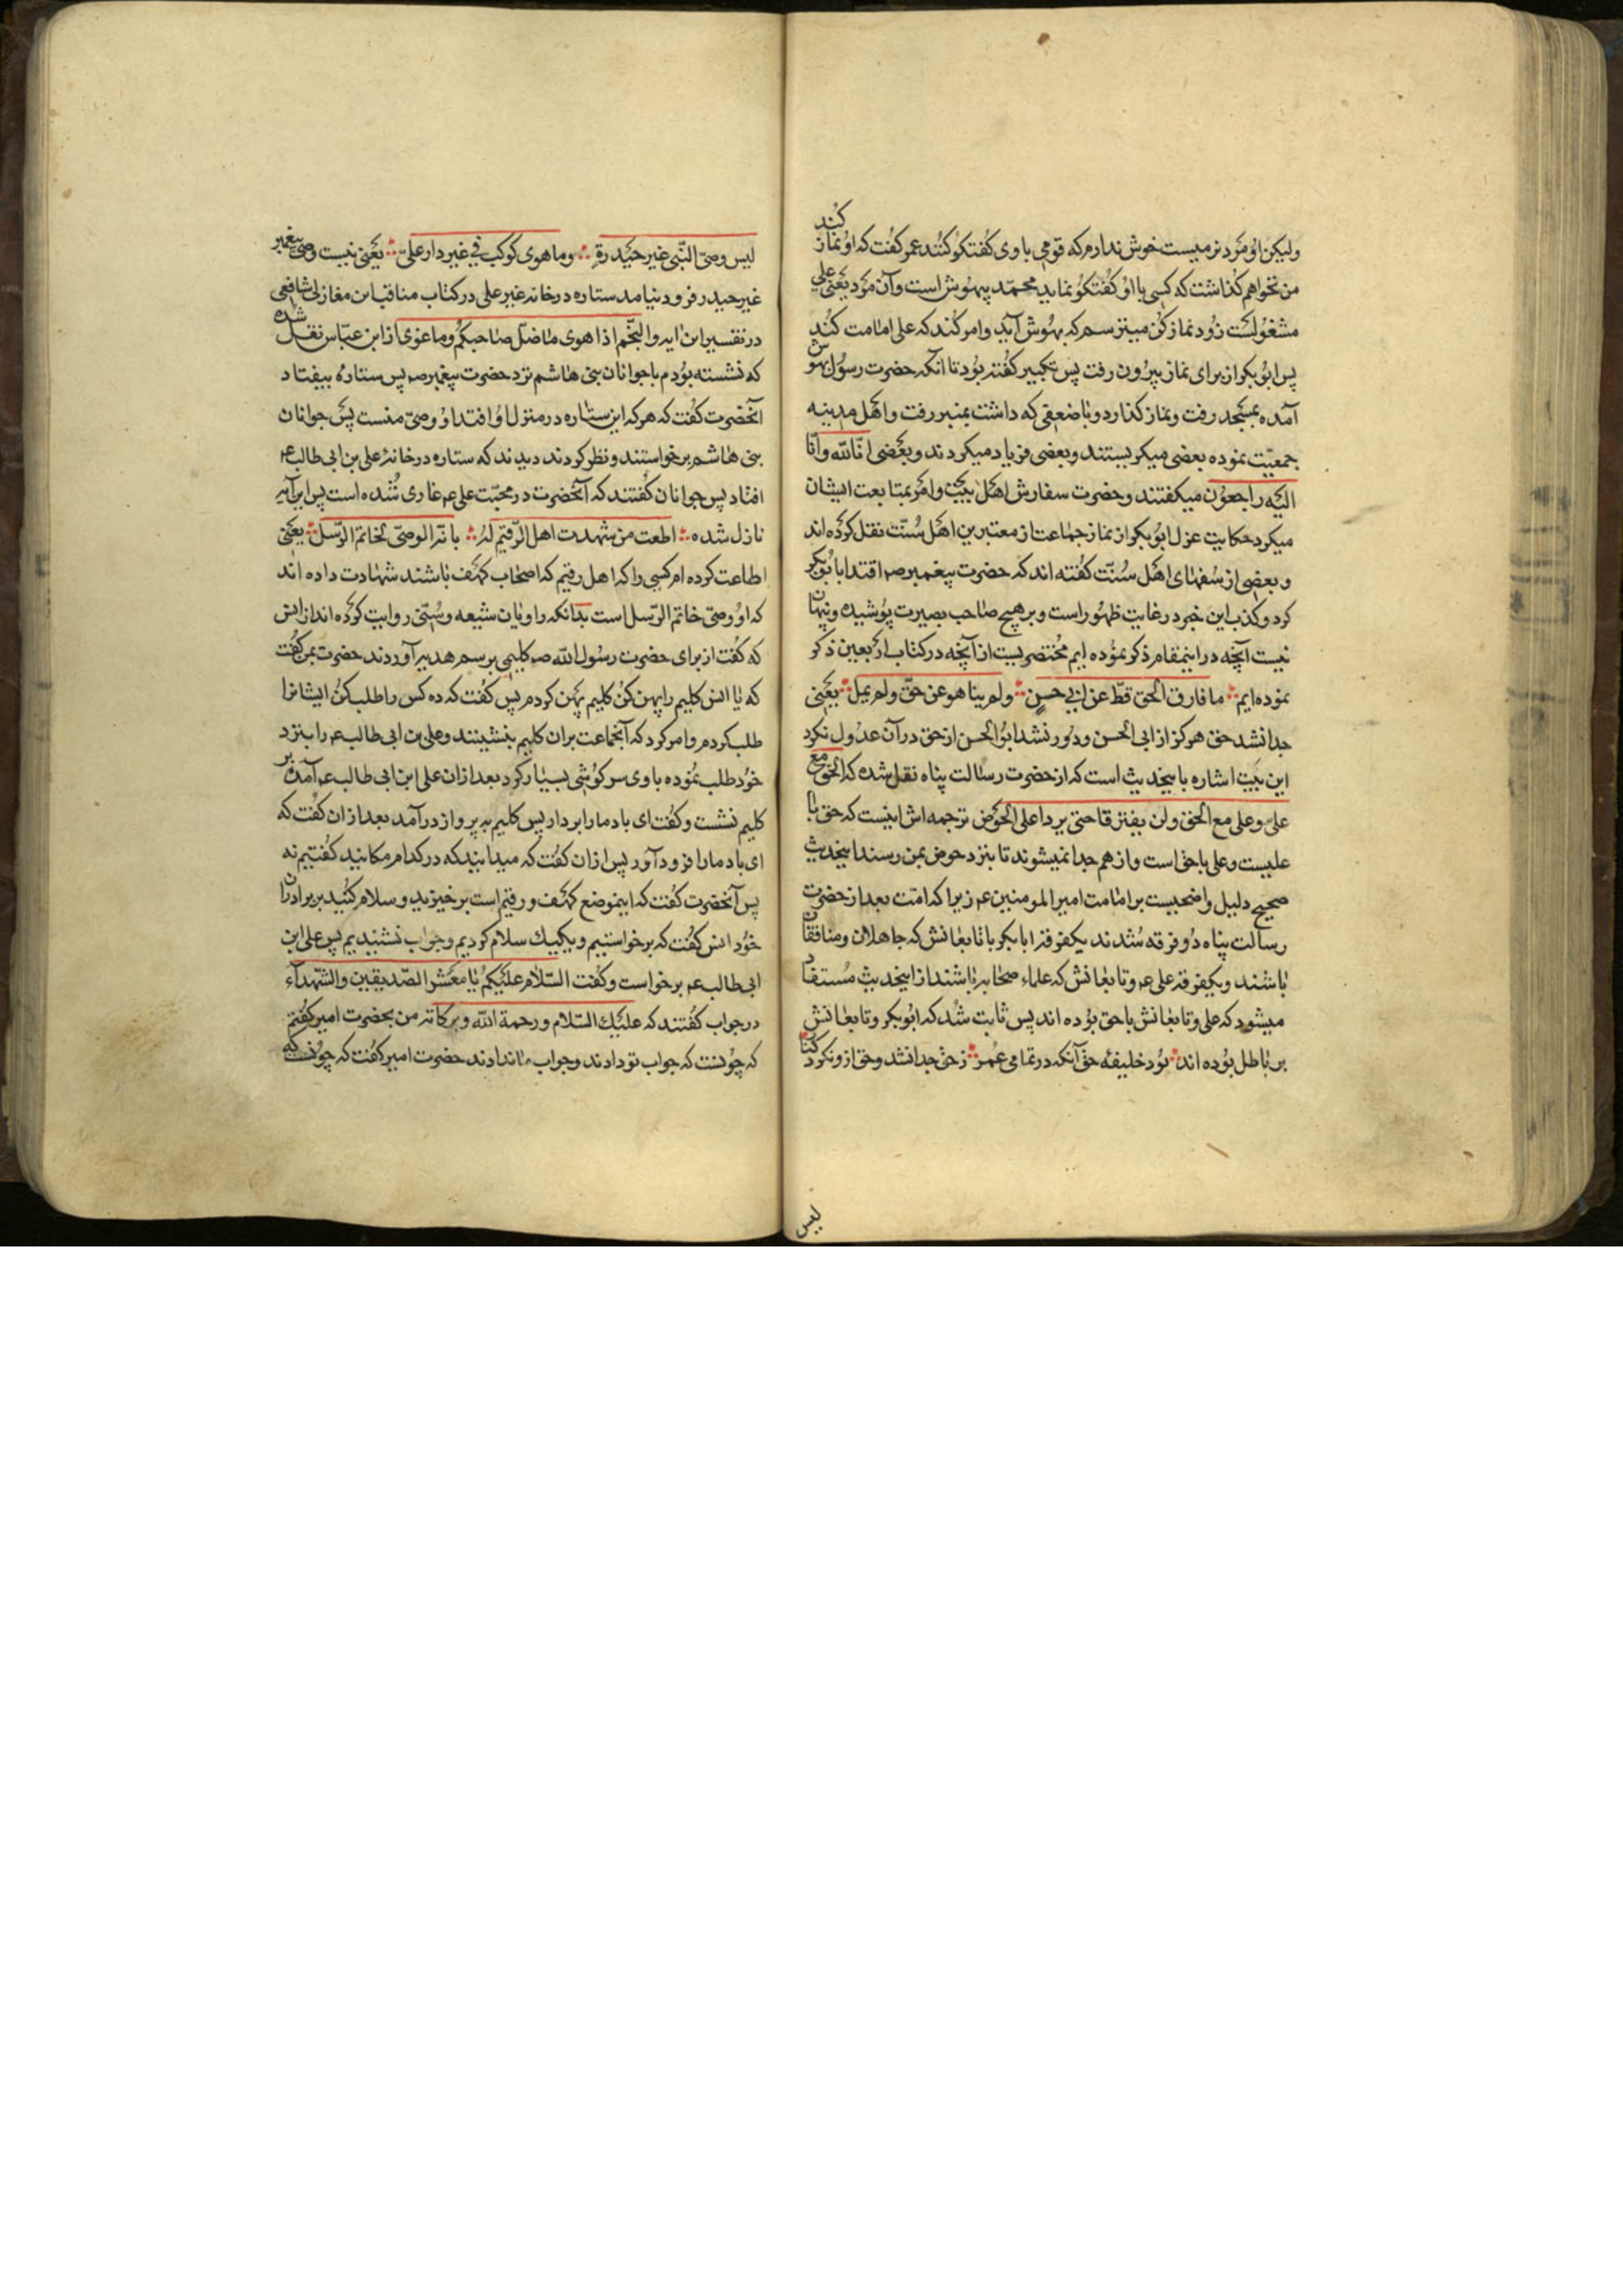 ولیکن اُو مَرد نرمیست خوش ندارم که قومی باوی گفتگو کنند عمر گفت که او نماز کند
من نخواهم گذاشت که کسی با او گفتگو نماید محمّد بیهوش است و آن مرد یعنی علی
مشغولست زود نماز کن میترسم که بهوش آید و امر کند که علی امامت کند
پس ابوبکر از برای نماز بیرون رفت پس تکبیر گفته بود تا آنکه حضرت رسول بهوش
آمده بمسجد رفت و نماز گذارد و با ضعفی که داشت بمنبر رفت و اهل مدینه
جمعیّت نموده بعضی میگریستند و بعضی فریاد میکردند و بعضی انّا لله وانّا
الیه راجعون میگفتند و حضرت سفارش اهل بیت و امر بمتابعت ایشان
میکرد حکایت عزل ابوبکر از نماز جماعت از معتبرین اهل سنّت نقل کرده اند
و بعضی از سفهای اهل سنّت گفته اند که حضرت پیغمبر صم اقتدا با بوبکر
کرد و کذب این خبر در غایت ظهور است و بر هیچ صاحب بصیرت پوشیده و پنهان
نیست آنچه در اینمقام ذکر نموده ایم مختصریست از آنچه در کتاب اربعین ذکر
نموده ایم ∴ ما فارق الحق قطّ عن ابی حسن ∴ ولم یناهو عن حقّ ولم یمل ∴ یعنی
جدا نشد حق هرگز از ابی الحسن و دور نشد ابوالحسن از حق در آن عدول نکرد
این بیت اشاره باینحدیث است که از حضرت رسالت پناه نقل شده که الحق مع
علیّ و علی مع الحق ولن یفترقا حتی یردا علی الحوض ترجمه اش اینست که حق با
علیست و علی با حق است و از هم جدا نمیشوند تا بنزد حوض بمن رسند اینحدیث
صحیح دلیل واضحیست بر امامت امیرالمومنین عم زیرا که امّت بعد از حضرت
رسالت پناه دو فرقه شدند یکفرقه ابابکر با تابعانش که جاهلان و منافقان
باشند و یکفرقه علی عم و تابعانش که علماء صحابه باشند از اینحدیث مستفاد
میشود که علی و تابعانش با حق بوده اند پس ثابت شد که ابوبکر و تابعانش
بر باطل بوده اند ∴ بود خلیفه حق آنکه در تمامی عمر ∴ ز حق جدا نشد و حق ازو نکرد کنار
لیس
لیس وصیّ النّبی غیر حیدرة ∴ وما هوی کوکب فی غیر دار علیّ ∴ یعنی نیست وصی پیغمبر
غیر حیدر فرود نیامد ستاره در خانه غیر علی در کتاب مناقب ابن مغازلی شافعی
در تفسیر این ایه والنّجم اذا هوی ما ضلّ صاحبکم وما غوی از ابن عبّاس نقل شده
که نشسته بودم با جوانان بنی هاشم نزد حضرت پیغمبر صم پس ستاره بیفتاد
آنحضرت گفت که هر که این ستاره در منزل او افتد او وصیّ منست پس جوانان
بنی هاشم برخواستند و نظر کردند دیدند که ستاره در خانهٔ علی بن ابی طالب عم
افتاد پس جوانان گفتند که آنحضرت در محبّت علی عم غاوی شده است پس این آیه
نازل شده ∴ اطعت من شهدت اهل الرّقیم له ∴ بانّه الوصیّ لخاتم الرّسل ∴ یعنی
اطاعت کرده ام کسی را که اهل رقیم که اصحاب کهف باشند شهادت داده اند
که او وصیّ خاتم الرّسل است بدانکه راویان شیعه و سُنّی روایت کرده اند از انس
که گفت از برای حضرت رسول الله صم کلیمی برسم هدیه آوردند حضرت بمن گفت
که یا انس کلیم را پهن کن کلیم پهن کردم پس گفت که ده کس را طلب کن ایشانرا
طلب کردم و امر کرد که آنجماعت بران کلیم بنشینند و علی بن ابی طالب عم را بنزد
خود طلب نموده باوی سرگوشی بسیار کرد بعد ازان علی ابن ابی طالب عم آمده بر
کلیم نشست و گفت ای باد ما را بردار پس کلیم به پرواز درآمد بعد ازان گفت که
ای باد ما را فرود آور پس ازان گفت که میدانید که در کدام مکانید گفتیم نه
پس آنحضرت گفت که اینموضع کهف و رقیم است برخیزید و سلام کنید بر برادران
خود انس گفت که برخواستیم و یکیك سلام کردیم و جواب نشنیدیم پس علی ابن
ابی طالب عم برخواست و گفت السّلام علیکم یا معشر الصّدیقین والشّهدآء
در جواب گفتند که علیك السّلام ورحمة الله وبرکاته من بحضرت امیر گفتم
که چونست که جواب تو دادند و جواب ما ندادند حضرت امیر گفت که چونست که